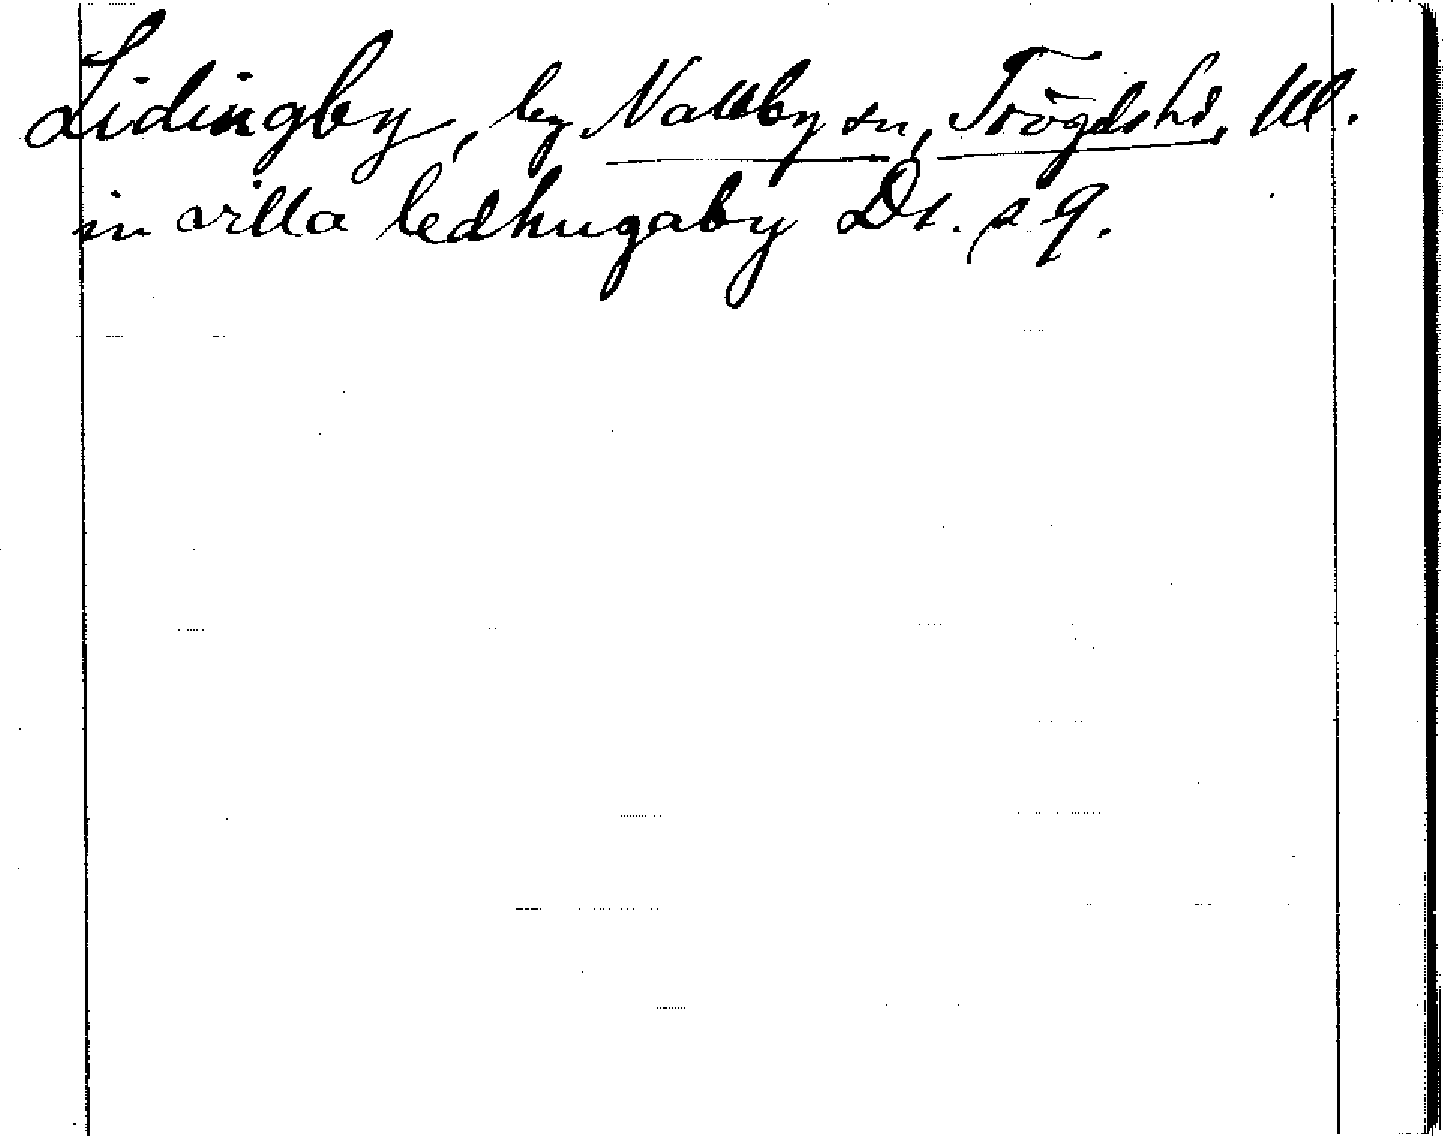 Lidingby, by Vallby sn, Trögds hd, Ul.
in villa ledhugaby Ds. s 9.